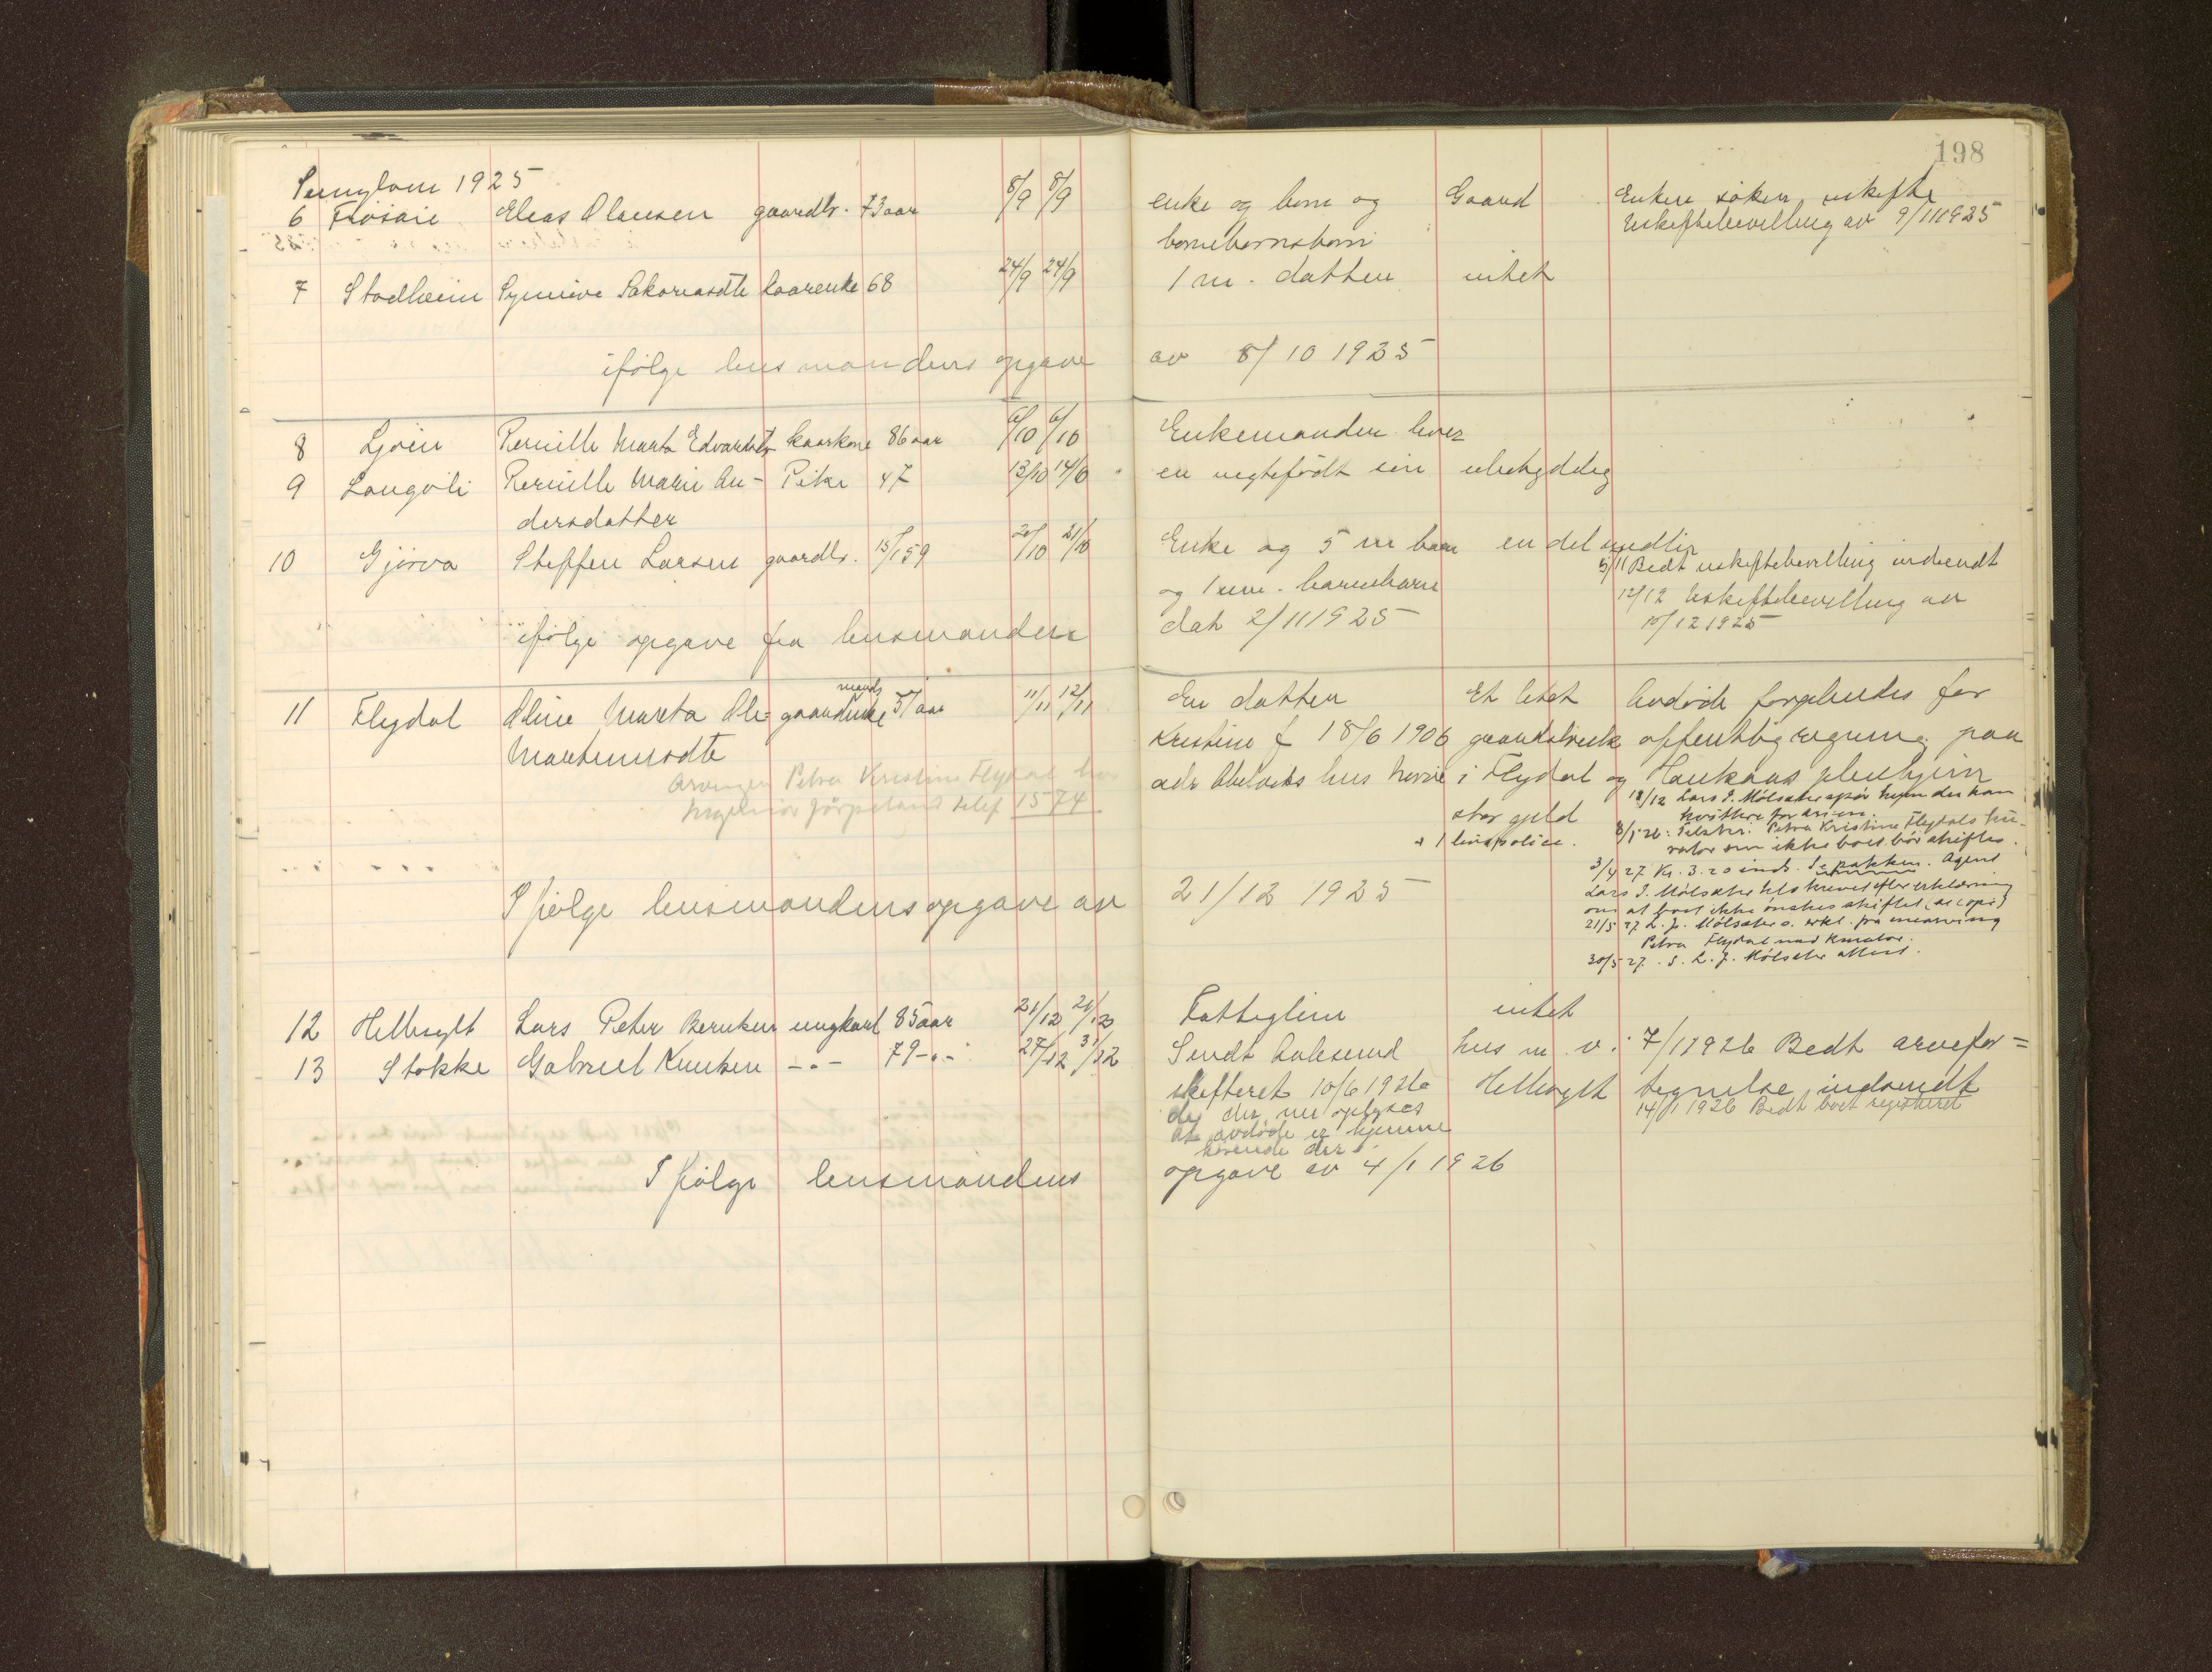 198
Sunylven 1925
6 Frøsaie Elias Olausen gaardbr. 73 aar 8/9 8/9 enke og born og Gaard Enken søker uskifte
bornebornsborn Uskiftebevilling av 9/11 1925
7 Stadheim Synnive Sakariasdtr kaarenke 68 24/9 24/9 1 m. datter intet
ifølge lensmandens opgave av 8/10 1925
8 Ljøen Pernille Marta Edvardsdtr kaarkone 86 aar 6/10 6/10 Enkemanden lever
9 Langvli Pernille Marie An- Pike 47 13/10 14/10 en uegtefødt søn ubetydelig
dersdatter
10 Gjørva Steffen Larsen gaardbr. 15/1 59 20/10 21/10 Enke og 5 m barn en del midler
5/11 Bedt uskiftebevilling indsendt
og 1 um. barnebarn
12/12 Uskiftebevilling av
10/12 1925
ifølge opgave fra lensmanden dat 2/11 1925
11 Flydal Oline Marta Ole- gaardmandsenke 57 aar 11/11 12/11 En datter Et litet Avdøde forpleiedes for
Martinusdtr Kristine f 18/6 1906 gaardsbruk offentlig regning paa
adr Abelseths hus Norie i Flydal og Haukaas pleiehjem
Arvingen Petra Kristine Flydal hos
Ingeniør Jørpeland telef 1574
stor gjeld
+ 1 livspolice.
18/12 Lars J. Mølsæter spør hvem der kan
kvittere for
8/1 26: Tilskr. Petra Kristine Flydals ku-
rator om ikke boet bør skiftes.
3/4 27 Kr. 3.20 inds. Se pakken. Agent
Lars J. Mølsæter krevet efter erklæring
om at boet ikke ønskes skiftet (se copi)
21/5 27 L. J. Mølsæter s. erkl. fra enearving
Petra Flydal med kurator.
30/5 27. S. L. J. Mølsæter attest.
Ifølge lensmandens opgave av 21/12 1925
12 Hellesylt Lars Peter Berntsen ungkarl 85 aar 21/12 21/12 Fattiglem intet
13 Stokke Gabriel Knutsen -"- 79 -"- 27/12 31/12 Sendt Aalesund hus m. v. i 7/1 1926 Bedt arvefor=
skifteret 10/6 1926 Hellesylt tegnelse indsendt
da der nu oplyses 14/1 1926 Bedt boet registreret
at avdøde er hjemme
hørende der
Ifølge lensmandens opgave av 4/1 1926